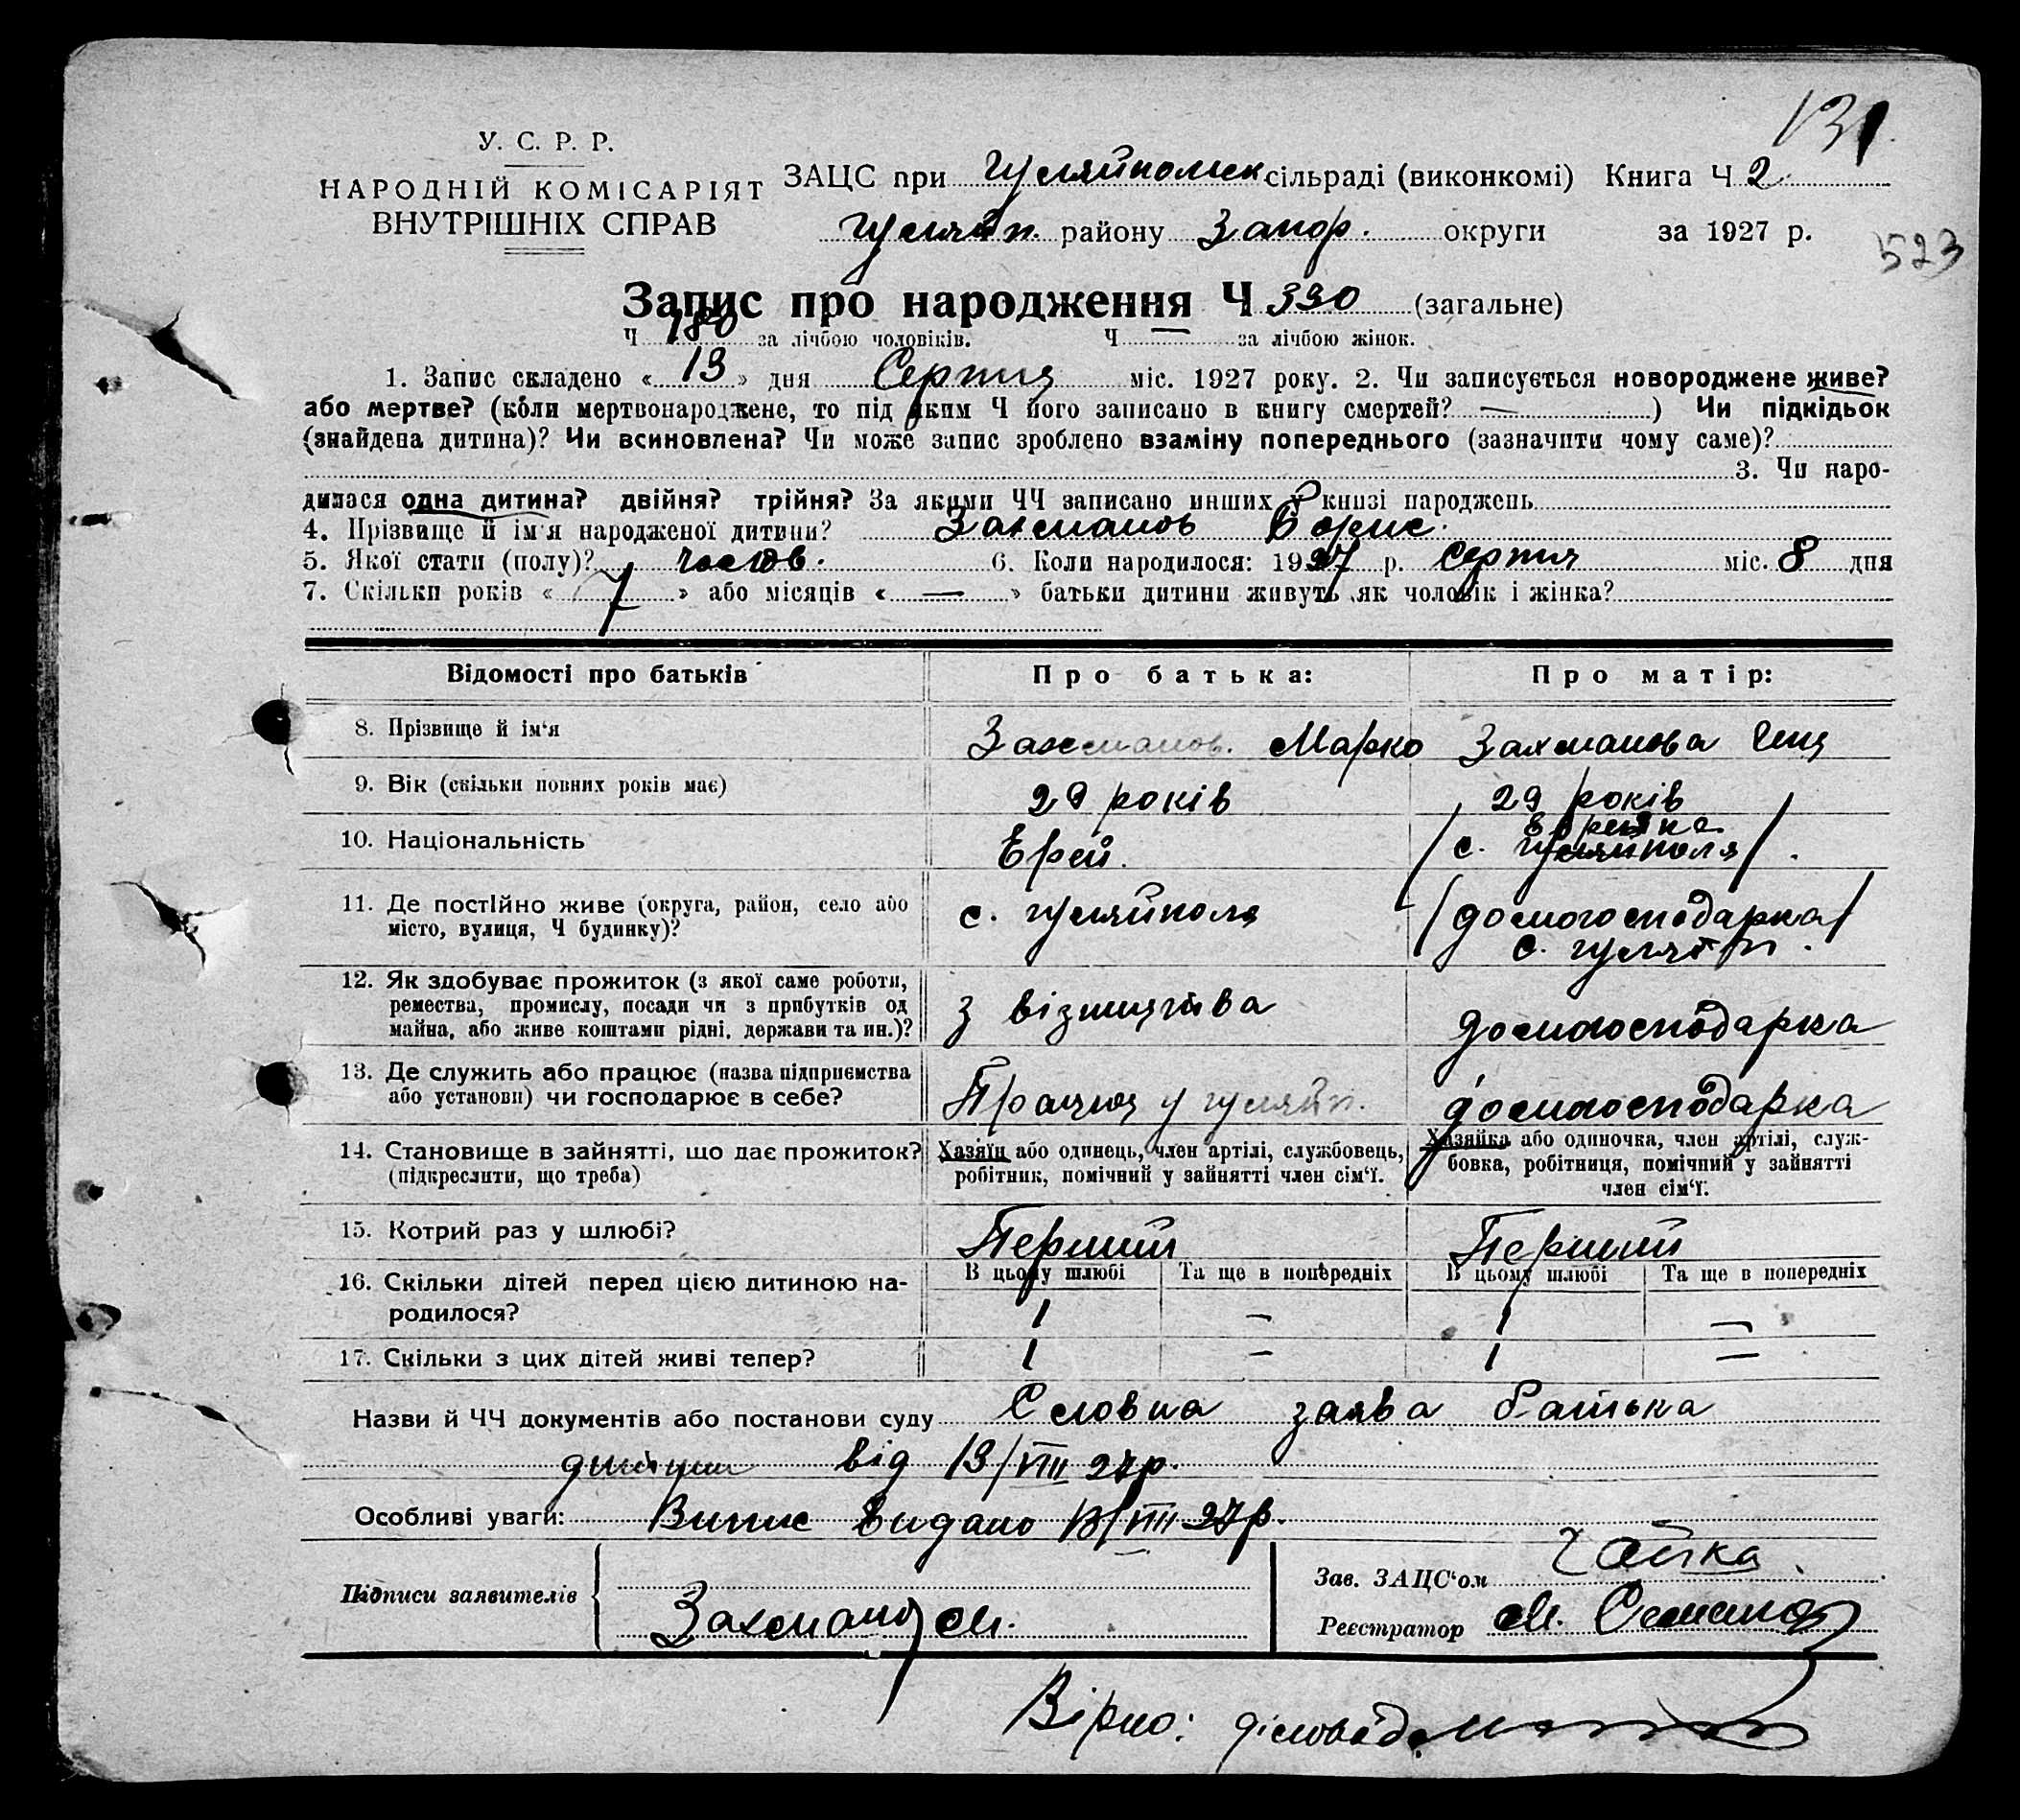 131
У. С. Р. Р.
НАРОДНІЙ КОМІСАРІЯТ
ВНУТРІШНІХ СПРАВ
ЗАЦС при Гуляйпольск сільраді (виконкомі) Книга Ч 2
Гуляйп. району Запор. округи за 1927 р.
523
Запис про народження Ч 390 (загальне)
Ч 180 за лічбою чоловіків. Ч — за лічбою жінок.
1. Запис складено « 13 » дня Серпня міс. 1927 року. 2. Чи записується новороджене живе?
або мертве? (коли мертвонароджене, то під яким Ч його записано в книгу смертей? — ) Чи підкідьок
(знайдена дитина)? Чи всиновлена? Чи може запис зроблено взаміну попереднього (зазначити чому саме)?
3. Чи наро-
дилася одна дитина? двійня? трійня? За якими ЧЧ записано инших у книзі народжень
4. Прізвище й ім'я народженої дитини? Захманов Борис.
5. Якої стати (полу)? чолов. 6. Коли народилося: 1927 р. Серпня міс. 8 дня
7. Скільки років « 7 » або місяців « — » батьки дитини живуть як чоловік і жінка?
Відомості про батьків Про батька: Про матір:
8. Прізвище й ім'я Захманов. Марко Захманова
9. Вік (скільки повних років має) 29 років 29 років
10. Національність Єрей. Єврейка
/ с. Гуляйполя / .
11. Де постійно живе (округа, район, село або
місто, вулиця, Ч будинку)? с. Гуляйполя / домогосподарка /
с. Гуляйп.
12. Як здобуває прожиток (з якої саме роботи,
ремества, промислу, посади чи з прибутків од
майна, або живе коштами рідні, держави та ин.)? З візництва домогосподарка
13. Де служить або працює (назва підприємства
або установи) чи господарює в себе? Працює у Гуляйп. домогосподарка
14. Становище в зайнятті, що дає прожиток?
(підкреслити, що треба)
Хазяїн або одинець, член артілі, службовець,
робітник, помічний у зайнятті член сім'ї.
Хазяйка або одиночка, член артілі, служ-
бовка, робітниця, помічний у зайнятті
член сім'ї.
15. Котрий раз у шлюбі? Перший Перший
В цьому шлюбі Та ще в попередніх В цьому шлюбі Та ще в попередніх
16. Скільки дітей перед цією дитиною на-
родилося? 1 — 1 —
17. Скільки з цих дітей живі тепер? 1 — 1 —
Назви й ЧЧ документів або постанови суду Словна заява батька
дитини від 13/VIII 27р.
Особливі уваги: Випис видано 13/VIII 27р.
Підписи заявителів Захманов М.
Зав. ЗАЦС'ом Чайка
Реєстратор М.
Вірно: діловод.